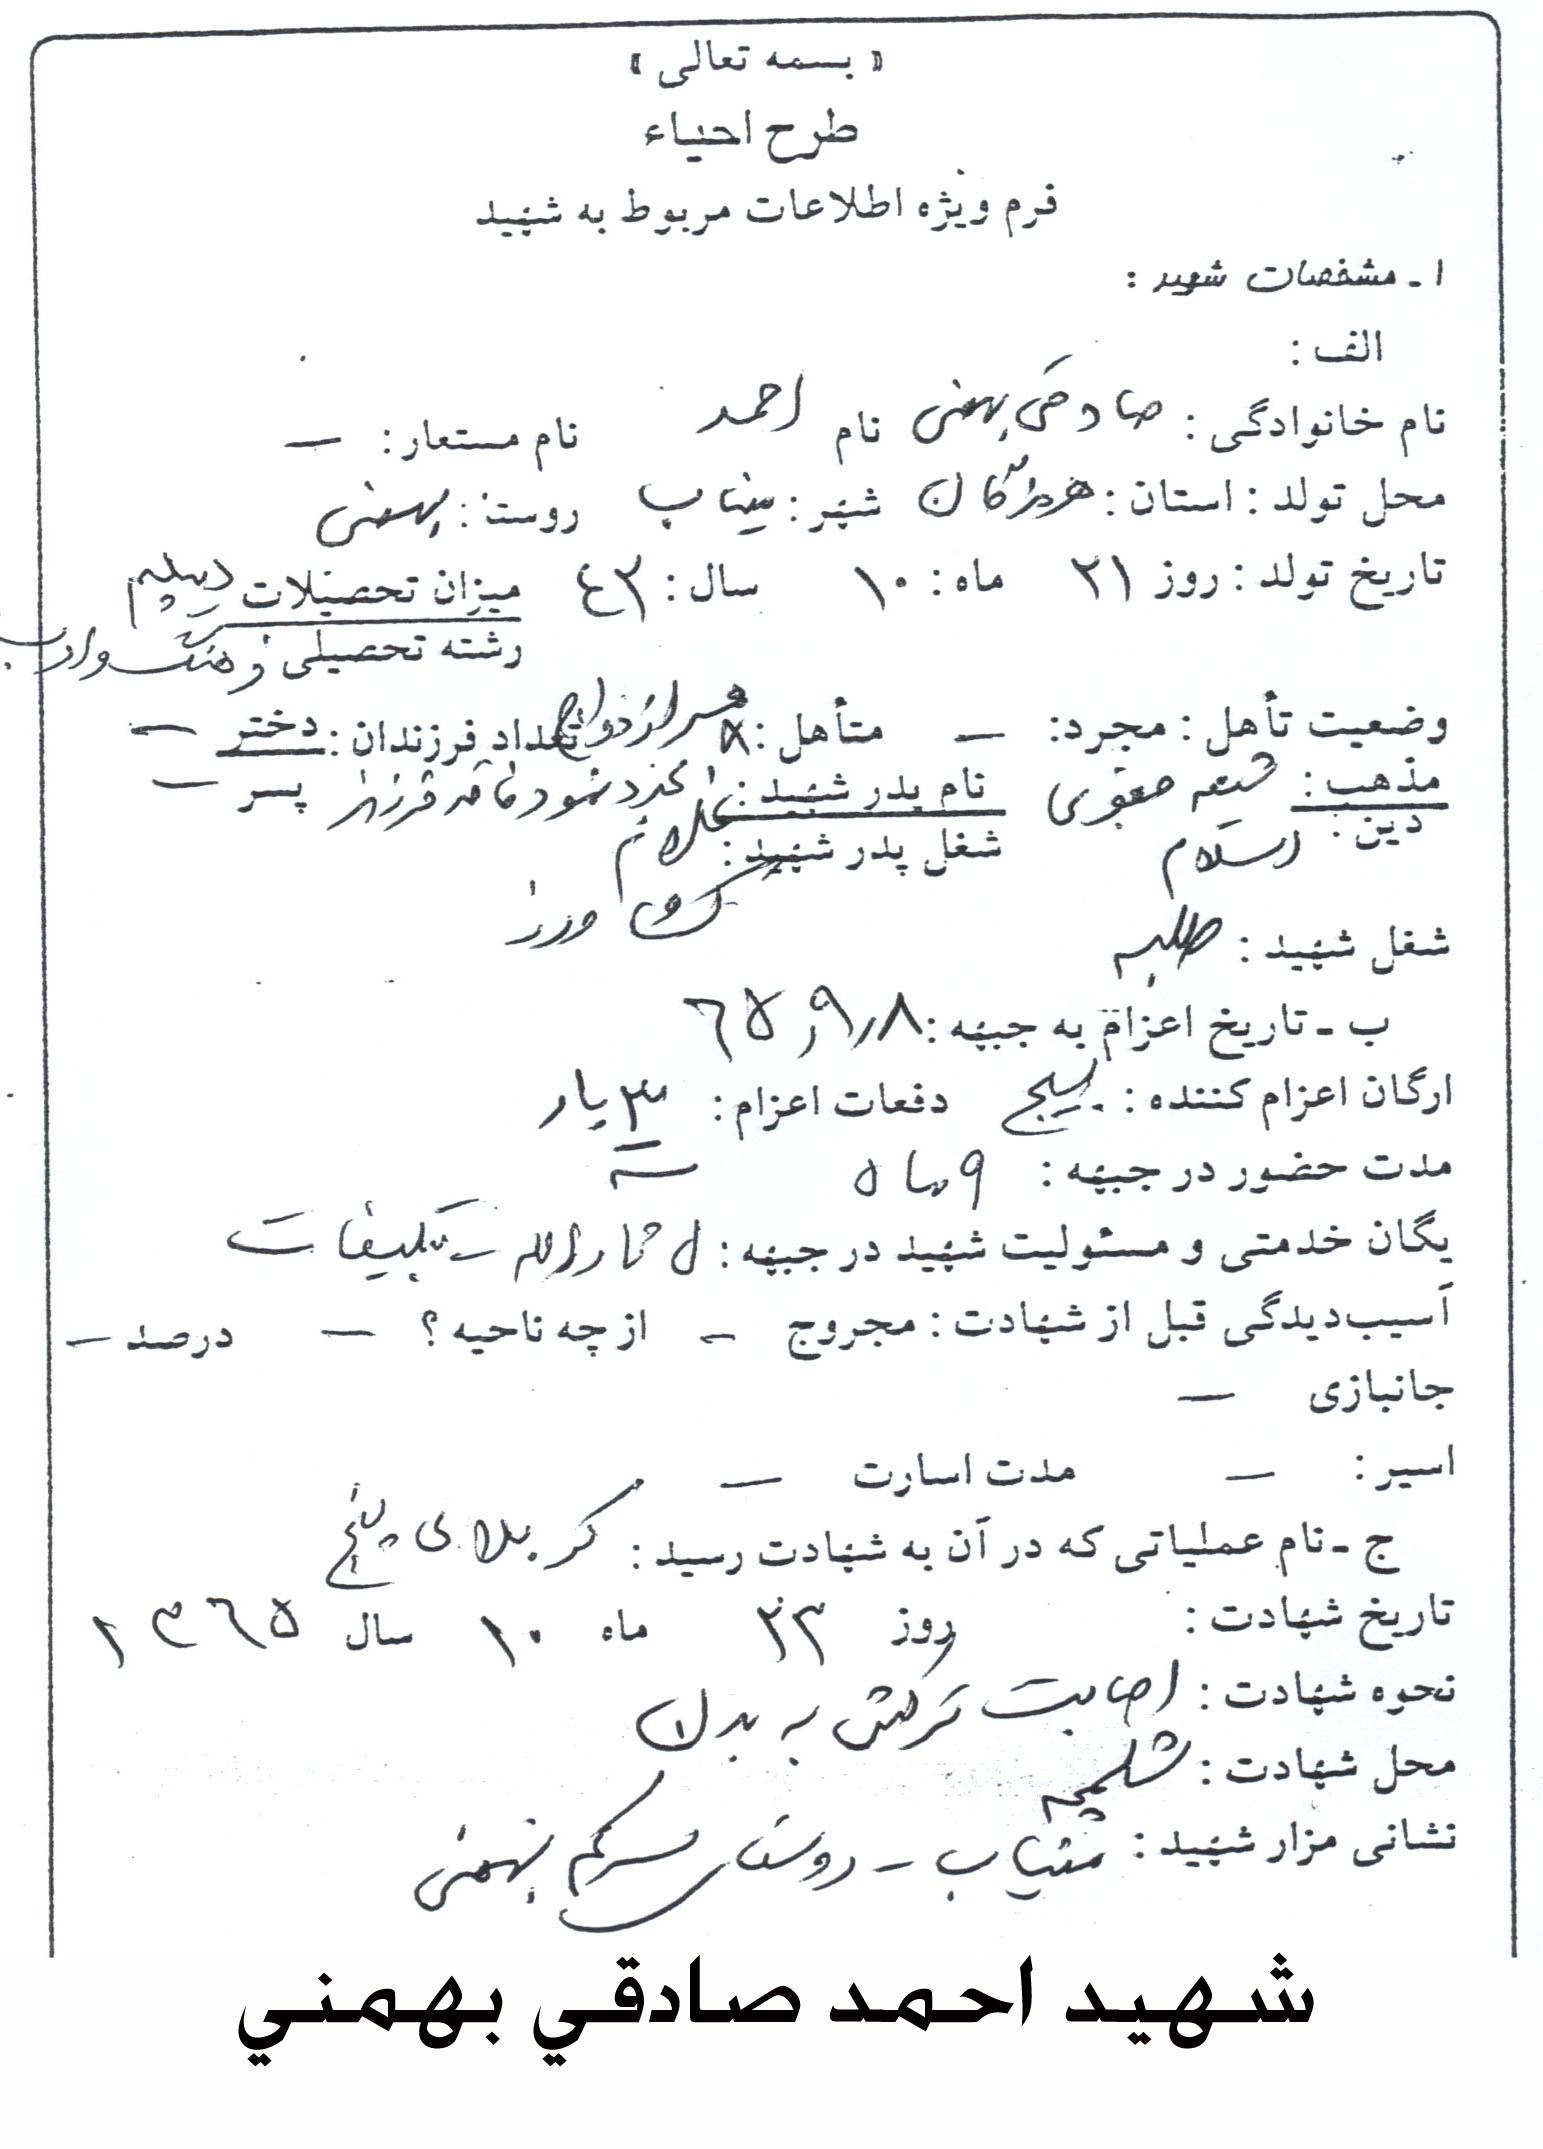 « بسمه تعالی »
طرح احیاء
فرم ویژه اطلاعات مربوط به شهید
۱ ـ مشخصات شهید :
الف :
نام خانوادگی : صادقی بهمنی نام احمد نام مستعار : —
محل تولد : استان : هرمزگان شهر : میناب روستا : بهمنی
تاریخ تولد : روز ۲۱ ماه : ۱۰ سال : ۴۲ میزان تحصیلات دیپلم
رشته تحصیلی فرهنگ و ادب
وضعیت تأهل : مجرد : — متأهل : × تعداد فرزندان : دختر —
مذهب : شیعه جعفری نام پدر شهید : غلام پسر —
دین : اسلام شغل پدر شهید : کشاورز
شغل شهید : طلبه
ب ـ تاریخ اعزام به جبهه : ۶۵٫۹٫۸
ارگان اعزام کننده : بسیج دفعات اعزام : ۳ بار
مدت حضور در جبهه : ۹ ماه
یگان خدمتی و مسئولیت شهید در جبهه : ل ثارالله – تبلیغات
آسیب‌دیدگی قبل از شهادت : مجروح – از چه ناحیه ؟ — درصد —
جانبازی —
اسیر : — مدت اسارت —
ج ـ نام عملیاتی که در آن به شهادت رسید : کربلای پنج
تاریخ شهادت : روز ۲۳ ماه ۱۰ سال ۱۳۶۵
نحوه شهادت : اصابت ترکش به بدن
محل شهادت : شلمچه
نشانی مزار شهید : میناب – روستای سرکم بهمنی
شهيد احمد صادقي بهمني